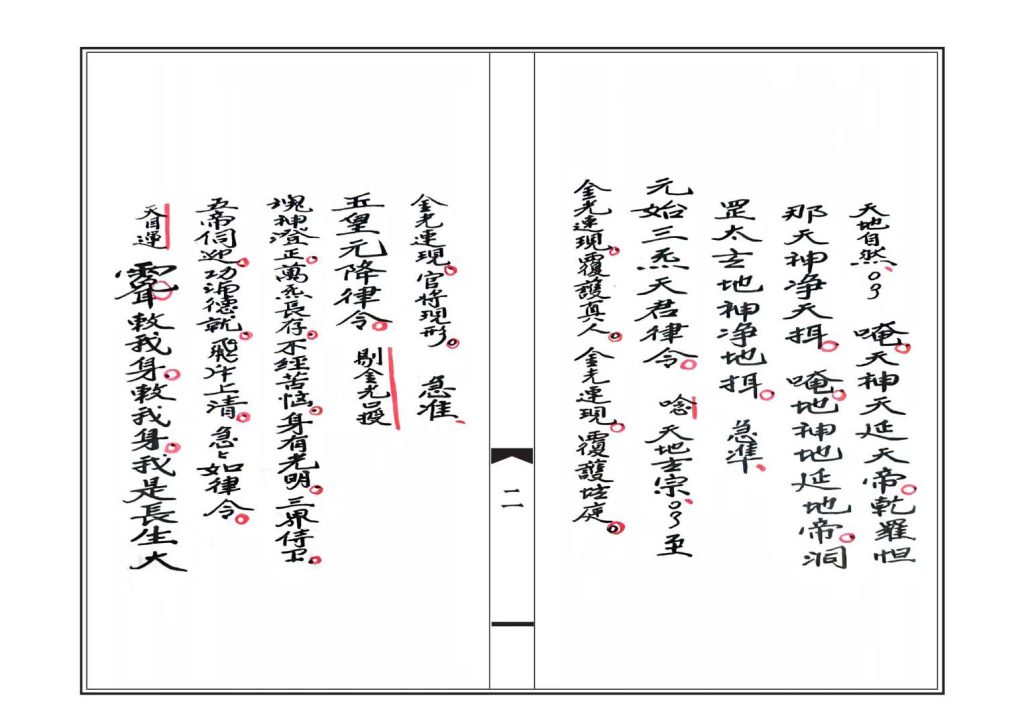 天地自然。唵。天神天延天帝。乾羅怛
那天神净天揖。唵。地神地延地帝。洞
罡太玄地神净地揖。急準、
元始三炁天君律令。唸天地玄宗、至
金光速現。覆護真人。金光速現。覆護坛庭。
二
金光速現。官将現形。急准、
玉皇元降律令。剔金光口授
塊神澄正。萬炁長存。不經苦惱。身有光明。三界侍卫。
五帝伺迎。功滿德就。飛升上清。急々如律令。
天目運 敕我身。敕我身。我是長生大